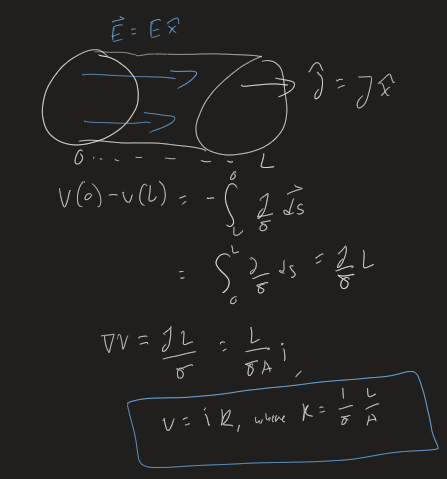 E⃗ = E x̂
ĵ = J x̂
0 . . . - - - - - L
V(0) - V(L) = - ∫_L^0 J/σ ds⃗
= ∫_0^L J/σ ds = J/σ L
∇V = JL/σ = L/σA i,
V = i R, where R = 1/σ L/A